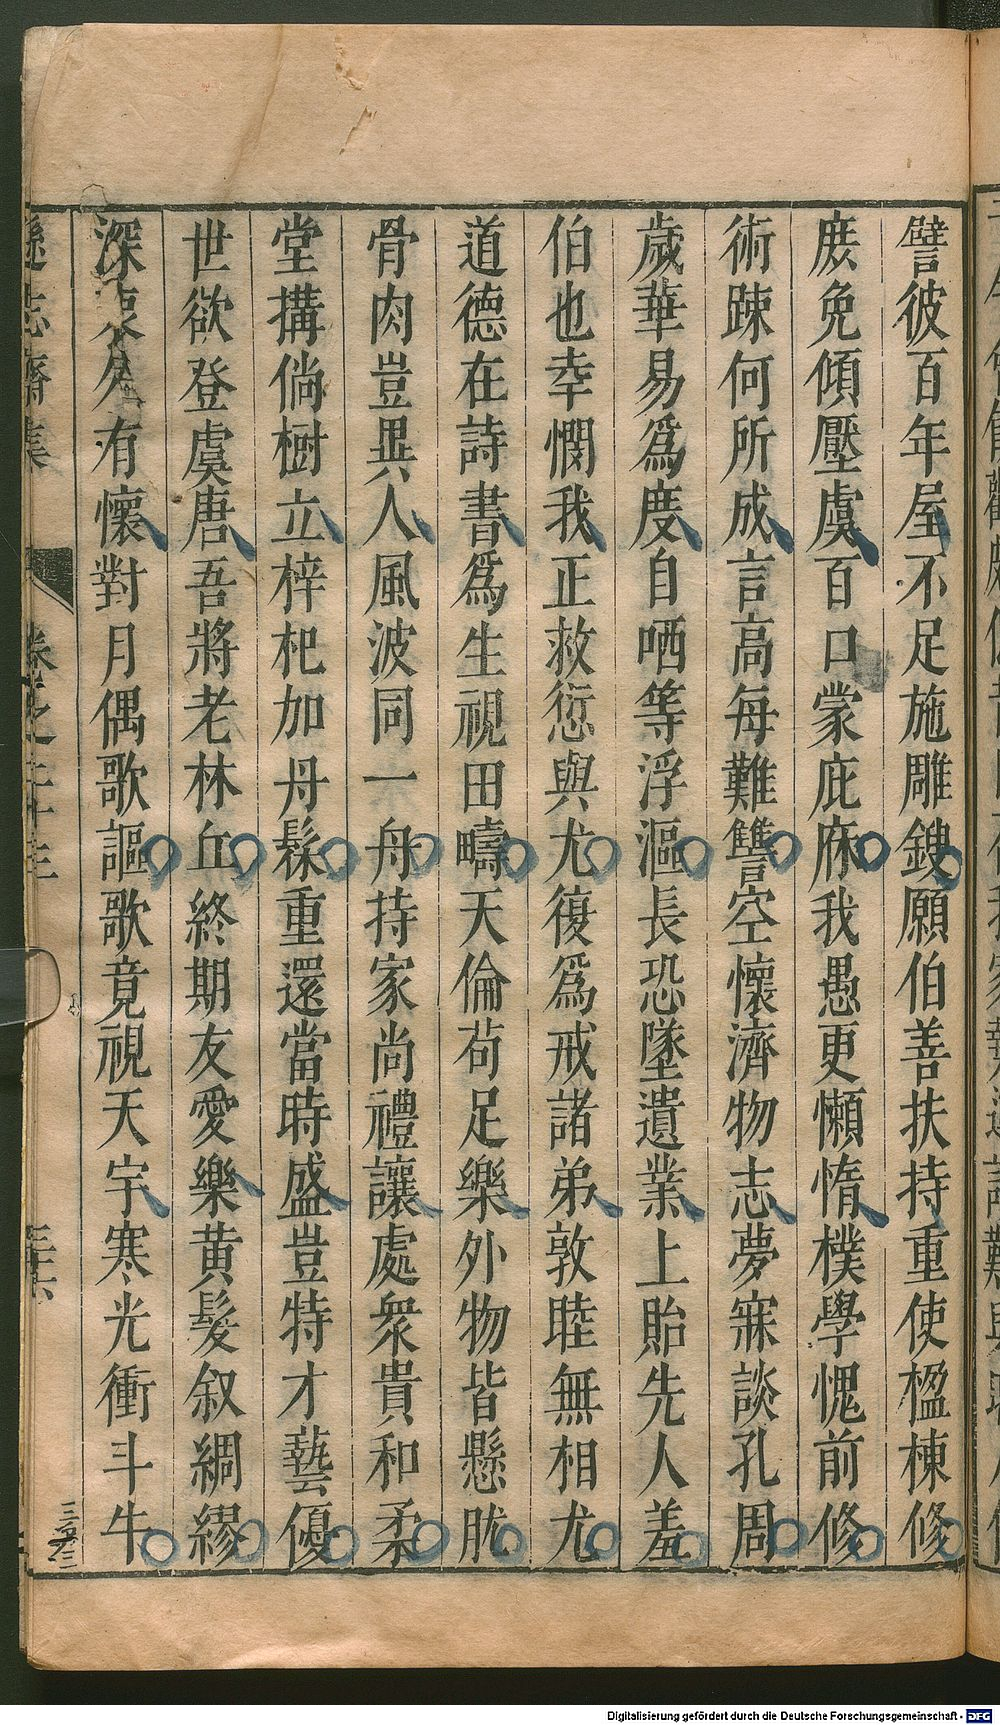 譬彼百年屋不足施雕鎪願伯善扶持重使楹棟修
庶免傾壓虞百口蒙庇庥我愚更懶惰樸學愧前修
術踈何所成言高每難讐空懷濟物志夢寐談孔周
歲華易爲度自哂等浮漚長恐墜遺業上貽先人羞
伯也幸憫我正救愆與尤復爲戒諸弟敦睦無相尤
道德在詩書爲生視田疇天倫苟足樂外物皆懸肬
骨肉豈異人風波同一舟持家尚禮讓處衆貴和柔
堂搆倘樹立梓杞加丹髹重還當時盛豈特才藝優
世欲登虞唐吾將老林丘終期友愛樂黄髮叙綢繆
深衷久有懷對月偶歌謳歌竟視天宇寒光衝斗牛
遜志齋集 卷之二十三 三十六
Digitalisierung gefördert durch die Deutsche Forschungsgemeinschaft - DFG